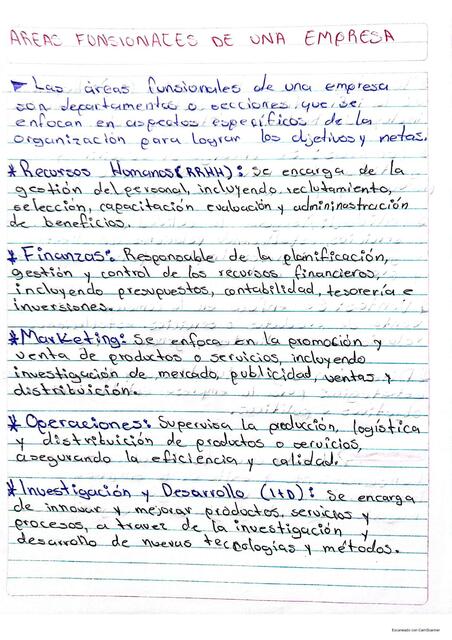 AREAS FUNSIONALES DE UNA EMPRESA
Las áreas funsionales de una empresa
son departamentos o secciones que se
enfocan en aspectos específicos de la
organización para lograr los objetivos y metas.
* Recursos Humanos (RRHH): se encarga de la
gestión del personal, incluyendo reclutamiento,
selección, capacitación evaluación y admininastración
de beneficios.
* Finanzas: Responsable de la planificación,
gestión y control de los recursos financieros,
incluyendo presupuestos, contabilidad, tesorería e
inversiones.
* Marketing: Se enfoca en la promoción y
venta de productos o servicios, incluyendo
investigación de mercado, publicidad, ventas y
distribuición.
* Operaciones: Supervisa la producción, logística
y distribuición de productos o servicios,
asegurando la eficiencia y calidad.
* Investigación y Desarrollo (I+D): Se encarga
de innovar y mejorar productos, servicios y
procesos, a travez de la investigación y
desarrollo de nuevas tecnologías y métodos.
Escaneado con CamScanner